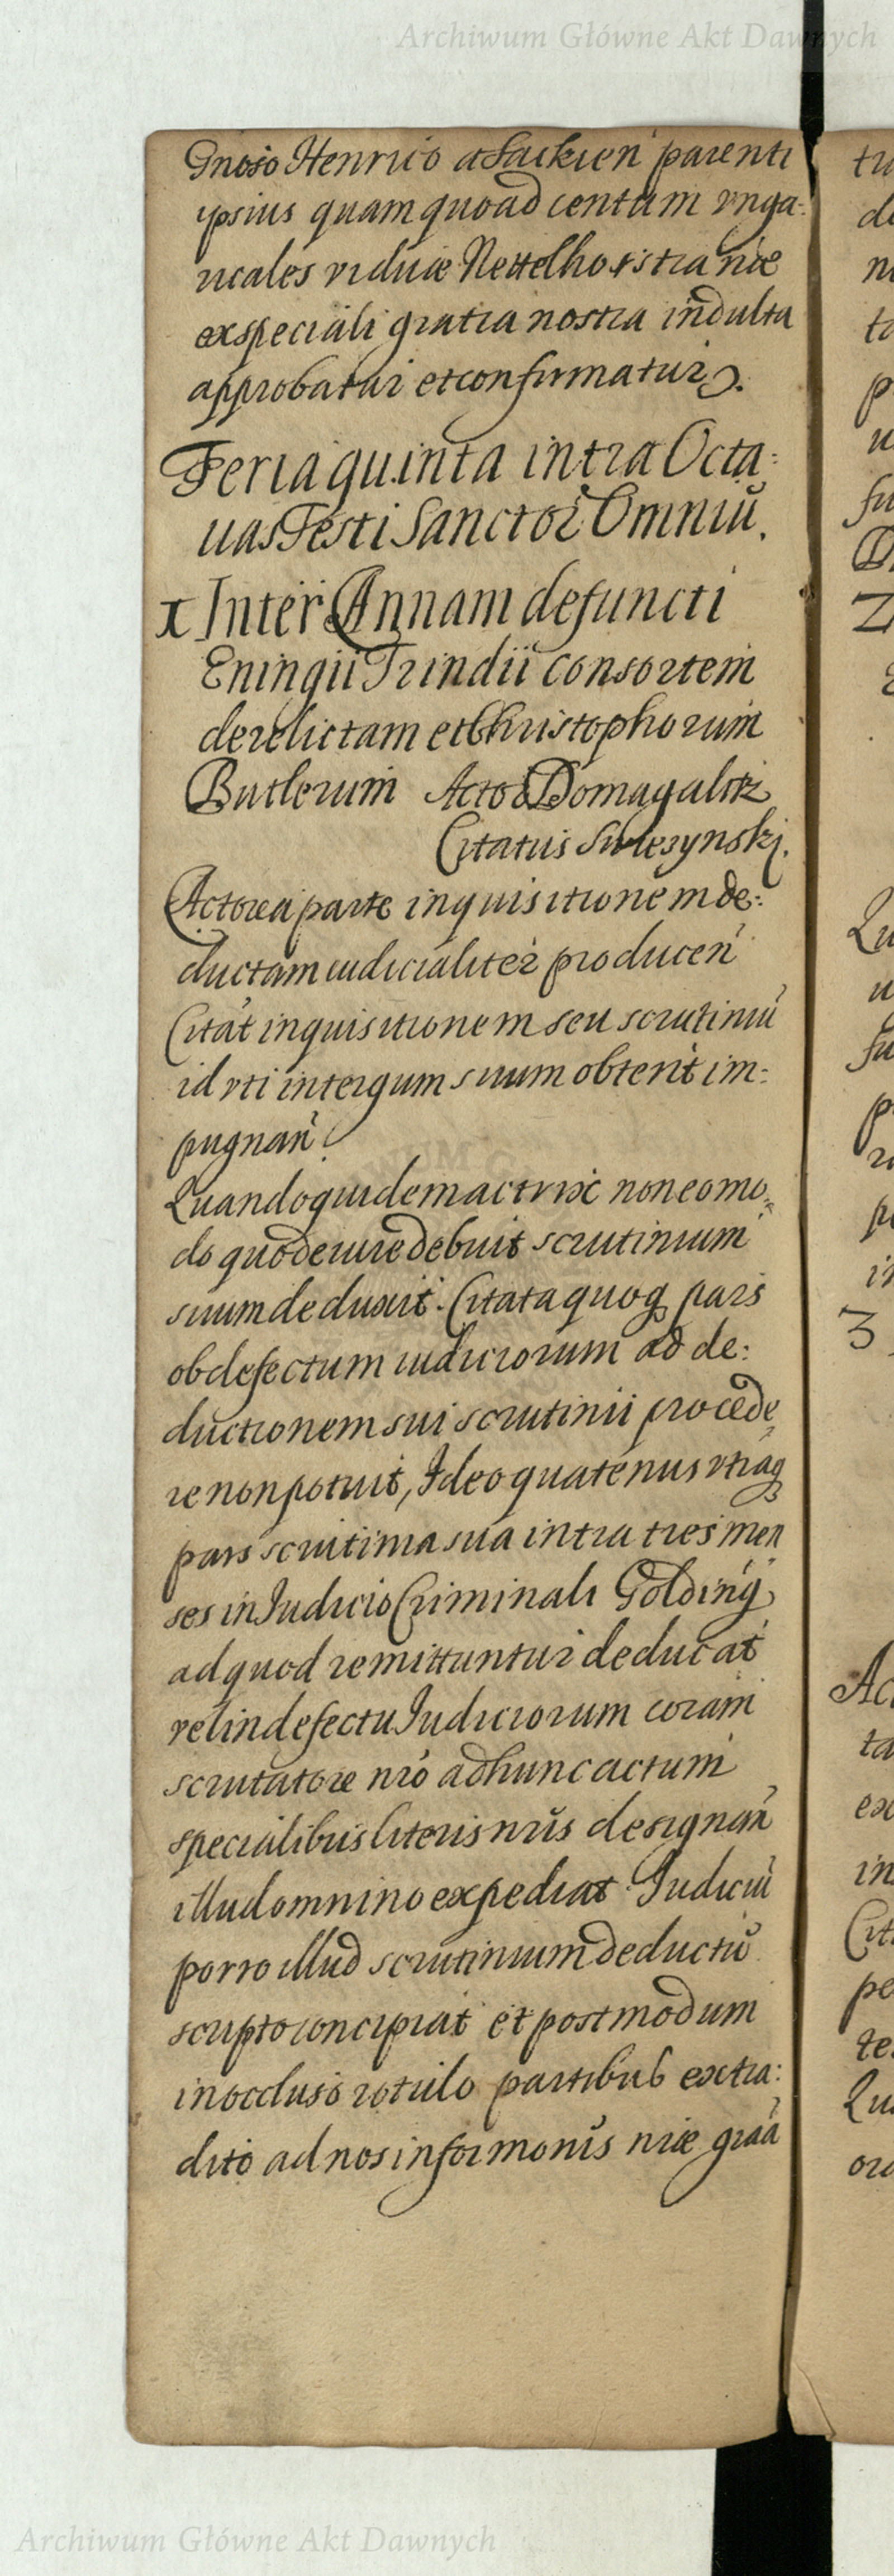 Archiwum Główne Akt Dawnych
Gnoso Henrico a Sackien parenti
ipsius quam quoad centum vnga:
ricales viduæ Nettelhorstianæ
ex speciali gratia nostra indulta
approbatur et confirmatur.
Feria quinta intra Octa:
uas Festi Sanctor Omniũ.
x Inter Annam defuncti
Eningii Trindii consortem
derelictam et Christophorum
Butlerum Actor Domagalitz
Citatus Swiesynskj.
Actorea parte inquisitionem de:
ductam iudicialiter producen
Citat inquisitionem seu scrutiniũ
id vti in tergum suum obtent im:
pugnan.
Quandoquidem actrix non eo mo
do quo de iure debuit scrutinium
suum deduxit. Citata quoq pars
ob defectum iudiciorum ad de:
ductionem sui scrutinii procede
re non potuit, Ideo quatenus vtraq
pars scrutinia sua intra tres men
ses in Judicio Criminali Golding
ad quod remittuntur deducat
vel in defectu Judiciorum coram
scrutatore nro ad hunc actum
specialibus literis nris designan
illud omnino expediat. Judiciũ
porro illud scrutinium deductũ
scripto concipiat et postmodum
in occluso rotulo partibus extra:
dito ad nos informonis nræ graa
tu
de
ne
ta
p
u
fu
Qu
u
fu
p
p
in
3
Ac
ta
ex
in
Cit
pe
te
Qu
ora
Archiwum Główne Akt Dawnych